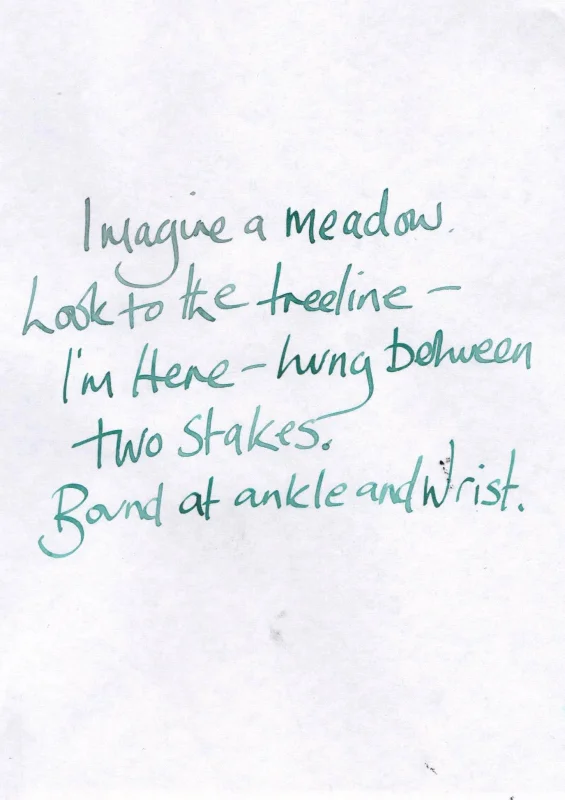 Imagine a meadow.
Look to the treeline –
I'm Here – hung between
two stakes.
Bound at ankle and wrist.